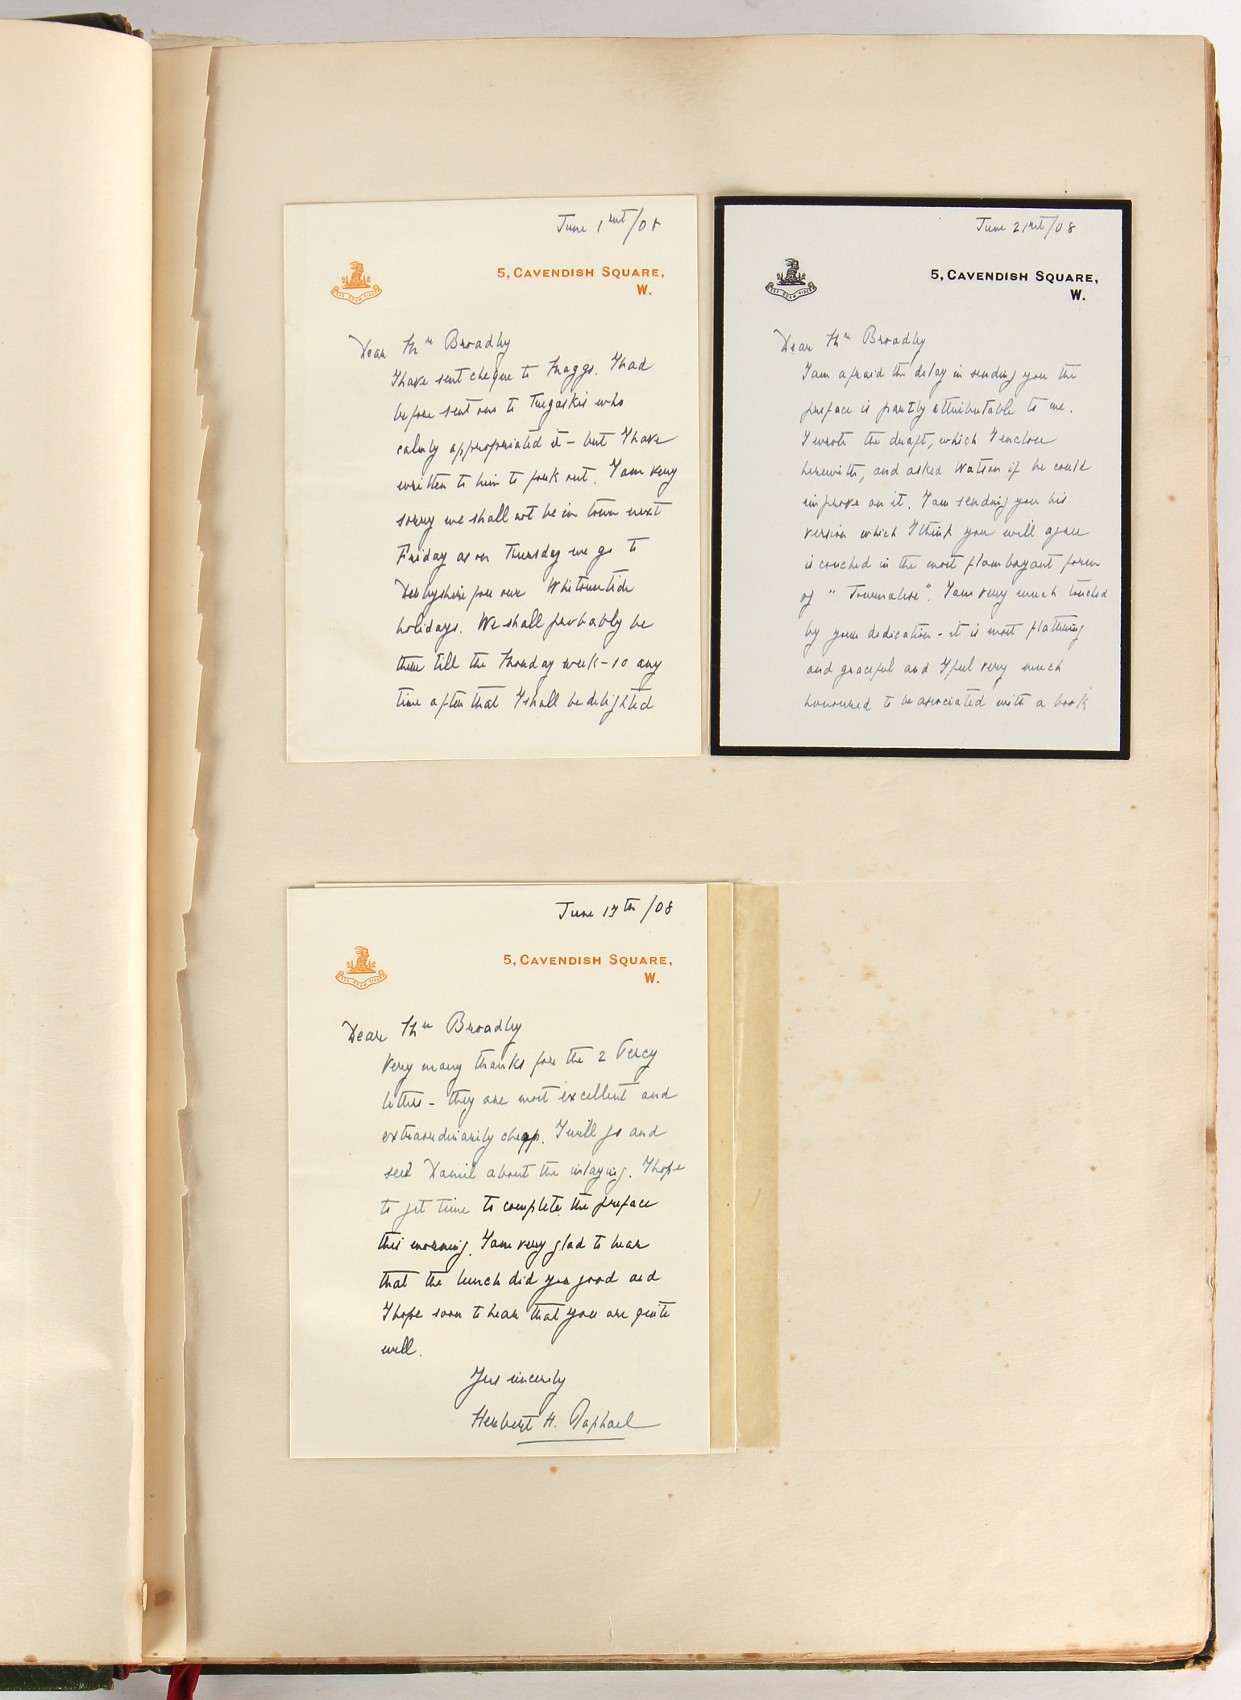 June 1rst/08
5, CAVENDISH SQUARE,
W.
Dear Mr Broadley
I have sent cheque to Maggs. I had
before sent one to Tregaskis who
calmly appropriated it - but I have
written to him to fork out. I am very
sorry we shall not be in town next
Friday as on Thursday we go to
Derbyshire for our Whitsuntide
holidays. We shall probably be
there till the Monday week - so any
time after that I shall be delighted
June 21rst/08
5, CAVENDISH SQUARE,
W.
Dear Mr Broadley
I am afraid the delay in sending you the
preface is partly attributable to me.
I wrote the draft, which I enclose
herewith, and asked Watson if he could
improve on it. I am sending you his
version which I think you will agree
is couched in the most flamboyant form
of " Journalese ". I am very much touched
by your dedication - it is most flattering
and graceful and I feel very much
honoured to be associated with a book
June 17th/08
5, CAVENDISH SQUARE,
W.
Dear Mr Broadley
Very many thanks for the 2 Percy
letters - they are most excellent and
extraordinarily cheap. I will go and
see Daniell about the inlaying. I hope
to get time to complete the preface
this morning. I am very glad to hear
that the lunch did you good and
I hope soon to hear that you are quite
well.
Yrs sincerely
Herbert H. Raphael